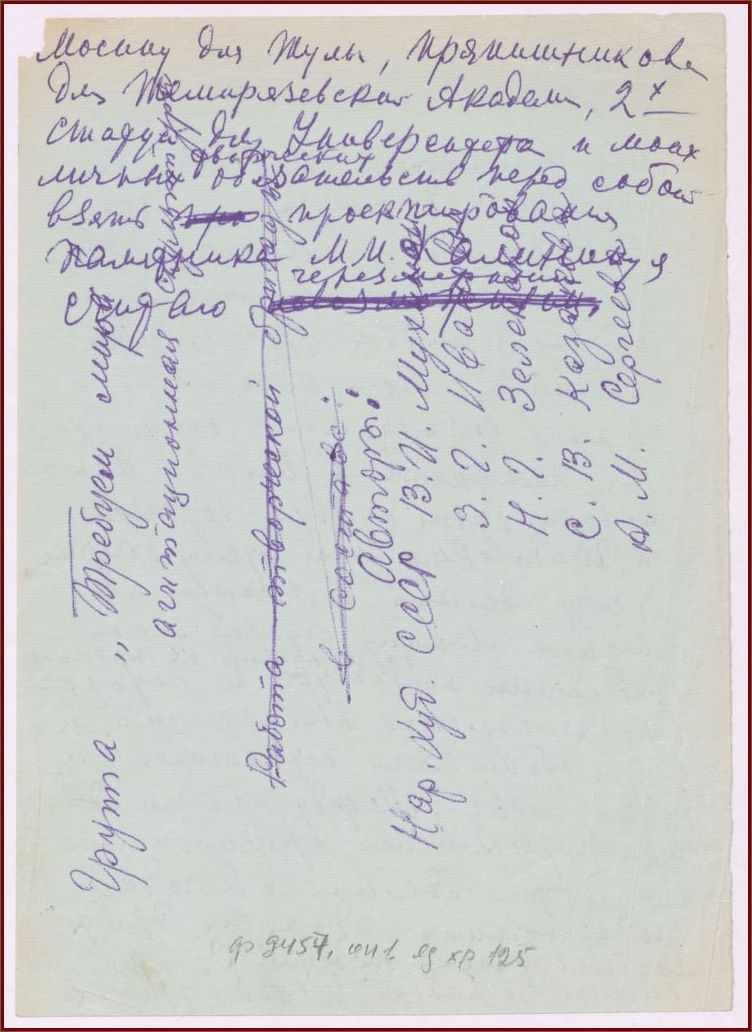 Мосину для Тулы, Прянишникова
для Темирязевской Академии, 2х
статуй для Университета и моих
творческих
личных обязательств перед собой
взять про проектирования
памятника М.И. Калинину я
чересчур
считаю
Группа „Требуем мира"
агитационная скульптура
Работа творческой бригады
в составе:
Авторы:
Нар. Худ. СССР В. И. Мухина
З. Г. Иванова
Н. Г. Зеленская
С. В. Казаков
А. М. Сергеев
ф 9457, оп 1 ед хр 125